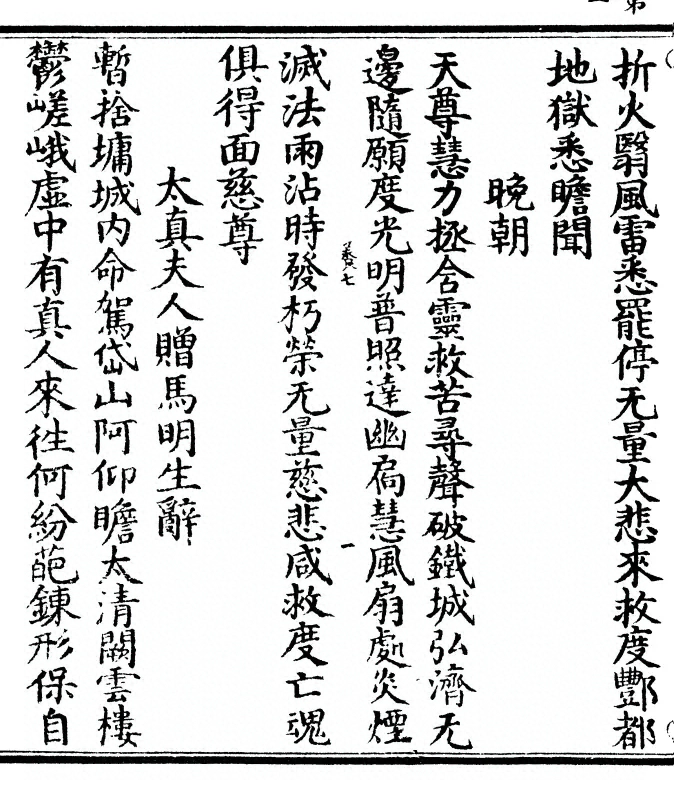 折火翳風雷悉罷停无量大悲來救度酆都
地獄悉瞻聞
晚朝
天尊慧力拯含靈救苦尋聲破鐵城弘濟无
邊隨願度光明普照達幽扃慧風扇處炎煙
滅法雨沾時發朽榮无量慈悲咸救度亡魂
俱得面慈尊
太真夫人贈馬明生辭
暫捨墉城内命駕岱山阿仰瞻太清闕雲樓
鬱嵯峨虛中有真人來往何紛葩鍊形保自